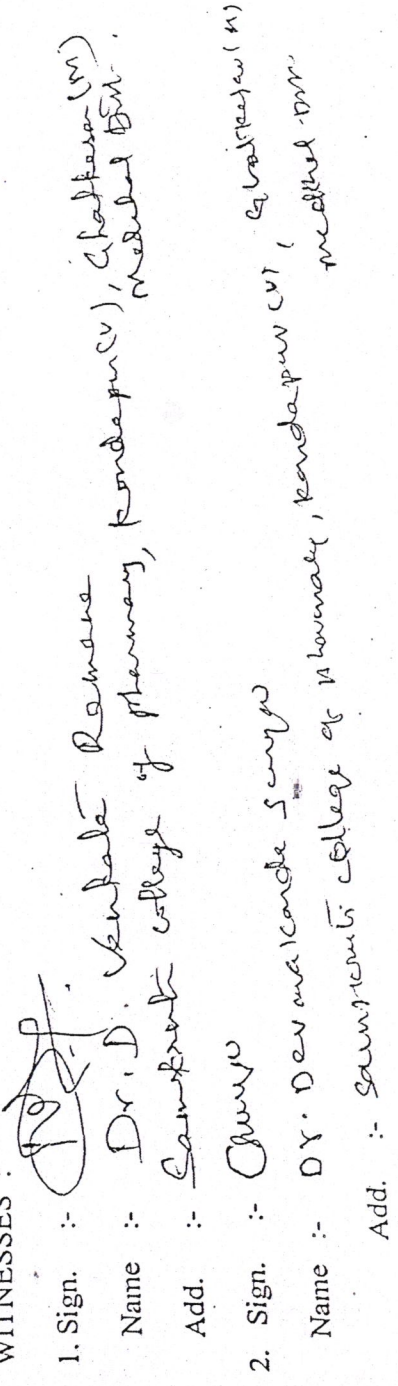 WITNESSES :
1. Sign. :-
Name :- Dr. D. Venkata Ramana
Add. :- Samskruti college of pharmacy, Kondapur(V), Ghatkesar(M)
Medchal Dist.
2. Sign. :-
Name :- Dr. Devmalkarde Surya
Add. :- Samskruti college of pharmacy, Kondapur(V), Ghatkesar(M)
Medchal Dist